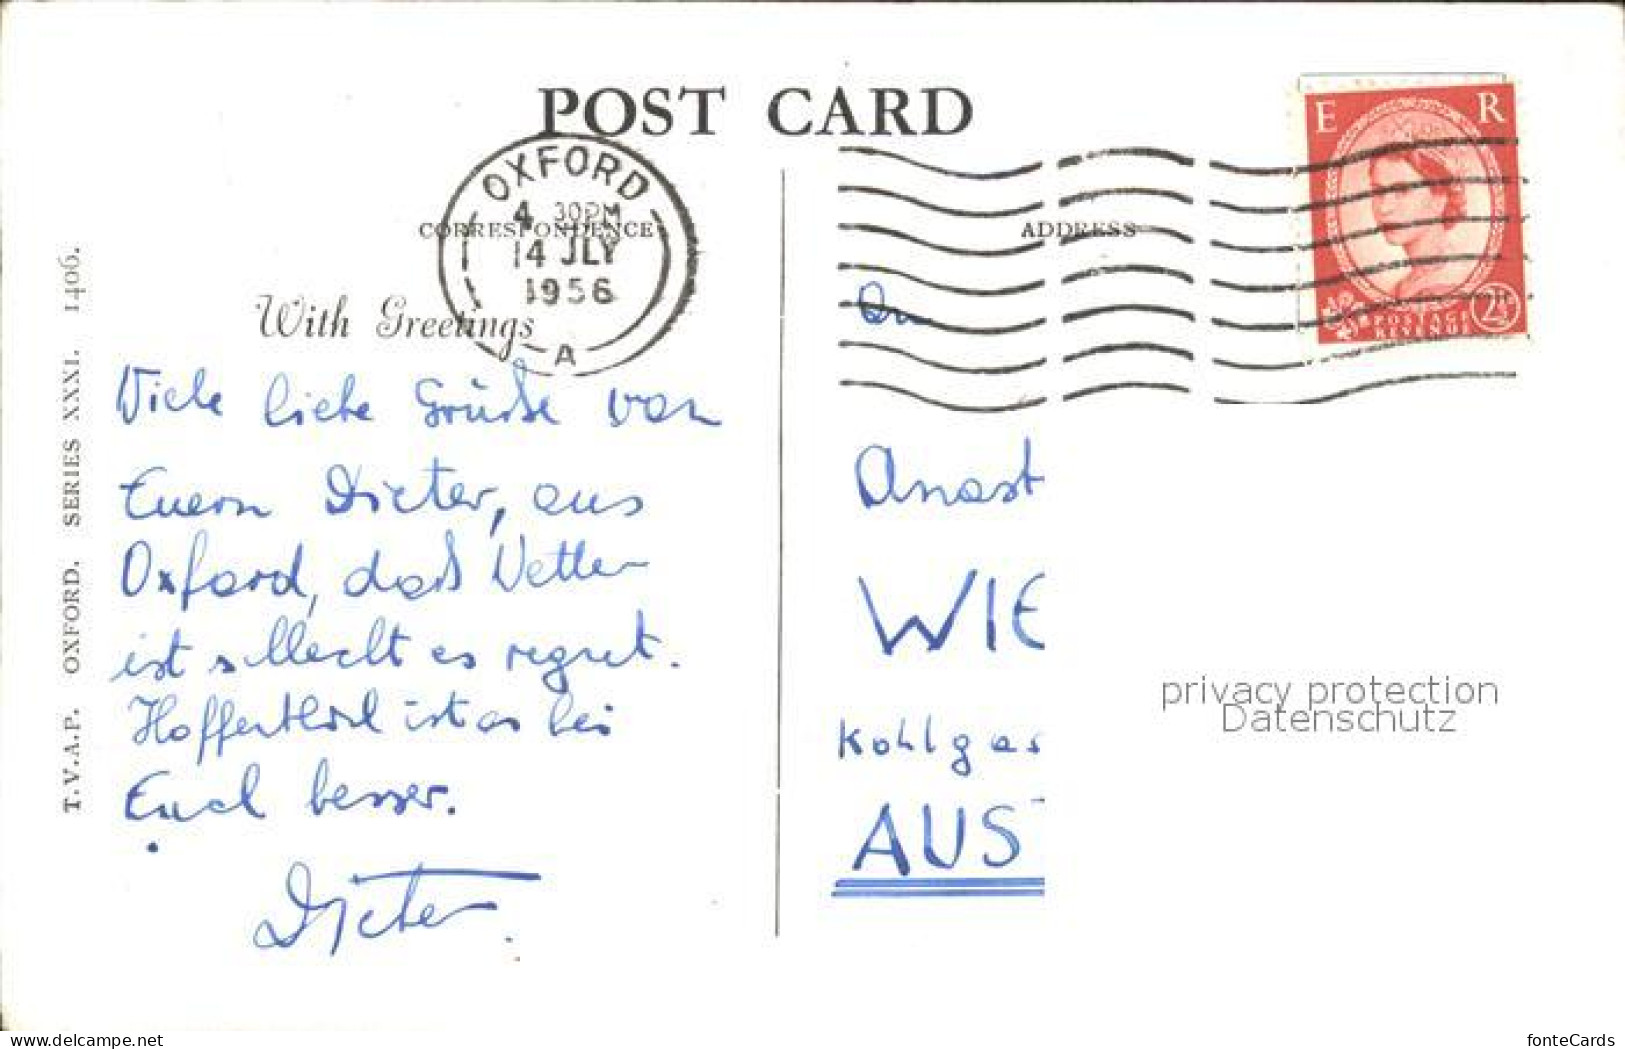 POST CARD
OXFORD
4 30PM
14 JLY
1956
A
CORRESPONDENCE
ADDRESS
E R
POSTAGE
REVENUE
2½
With Greetings
Viele liebe Grüße von
Euerm Dieter, aus
Oxford, das Wetter
ist schlecht es regnet.
Hoffentlich ist es bei
Euch besser.
Dieter.
An
Anast
WIE
Kohlgas
AUST
T.V.A.P. OXFORD. SERIES XXXI. 1406.
privacy protection
Datenschutz
www.delcampe.net
fonteCards